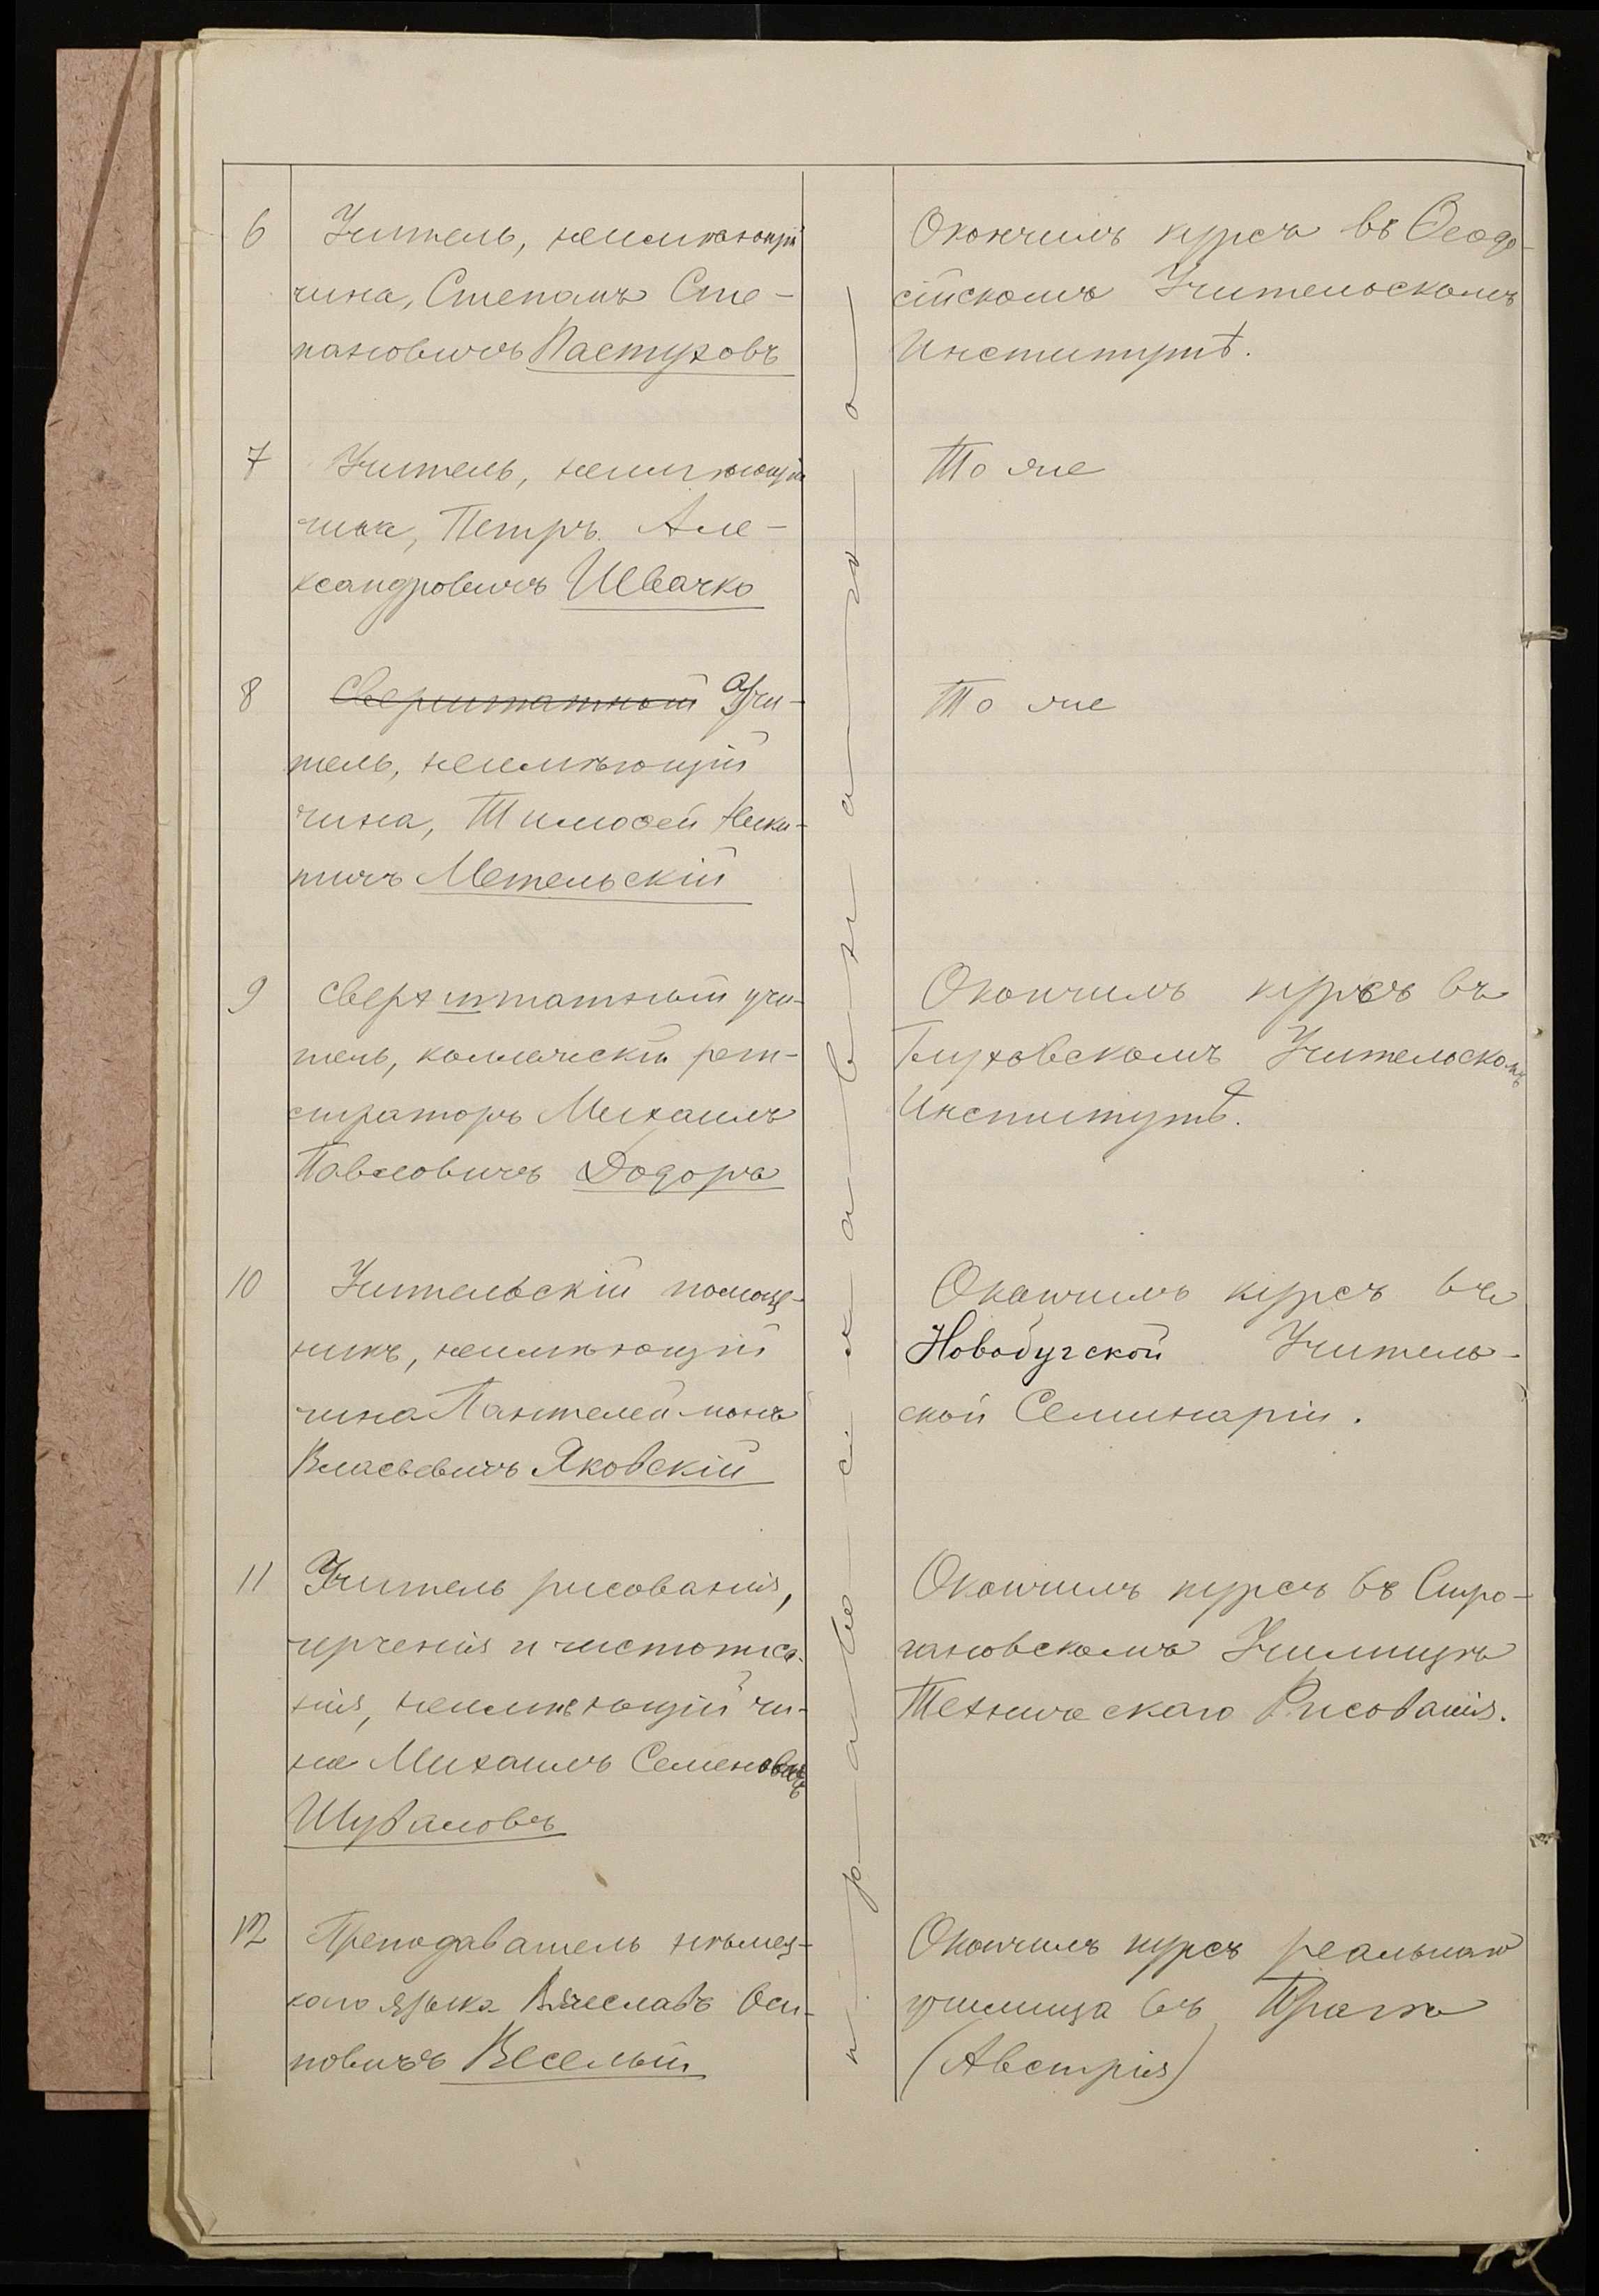 6 Учитель, неимѣющій
чина, Степанъ Сте-
пановичъ Пастуховъ
Окончилъ курсъ въ Ѳеодо-
сійскомъ Учительскомъ
Институтѣ.
7 Учитель, неимѣющій
чина, Петръ Але-
ксандровичъ Швачко
То же
8 Сверхштатный Учи-
тель, неимѣющій
чина, Тимоѳей Ники-
тичъ Метельскій
То же
9 Сверхштатный учи-
тель, коллежскій реги-
страторъ Михаилъ
Павловичъ Додора
Окончилъ курсъ въ
Глуховскомъ Учительскомъ
Институтѣ.
10 Учительскій помощ-
никъ, неимѣющій
чина Пантелеймонъ
Власьевичъ Яковскій
Окончилъ курсъ въ
Новобугской Учитель-
ской Семинаріи.
11 Учитель рисованія,
черченія и чистописа-
нія, неимѣющій чи-
на Михаилъ Семеновичъ
Шуваловъ
Окончилъ курсъ въ Стро-
гановскомъ Училищѣ
Техническаго Рисованія.
12 Преподаватель нѣмец-
каго языка Вячеславъ Оси-
повичъ Веселый
Окончилъ курсъ реальнаго
училища въ Прагѣ
(Австрія)
п р а в о с л а в н а г о